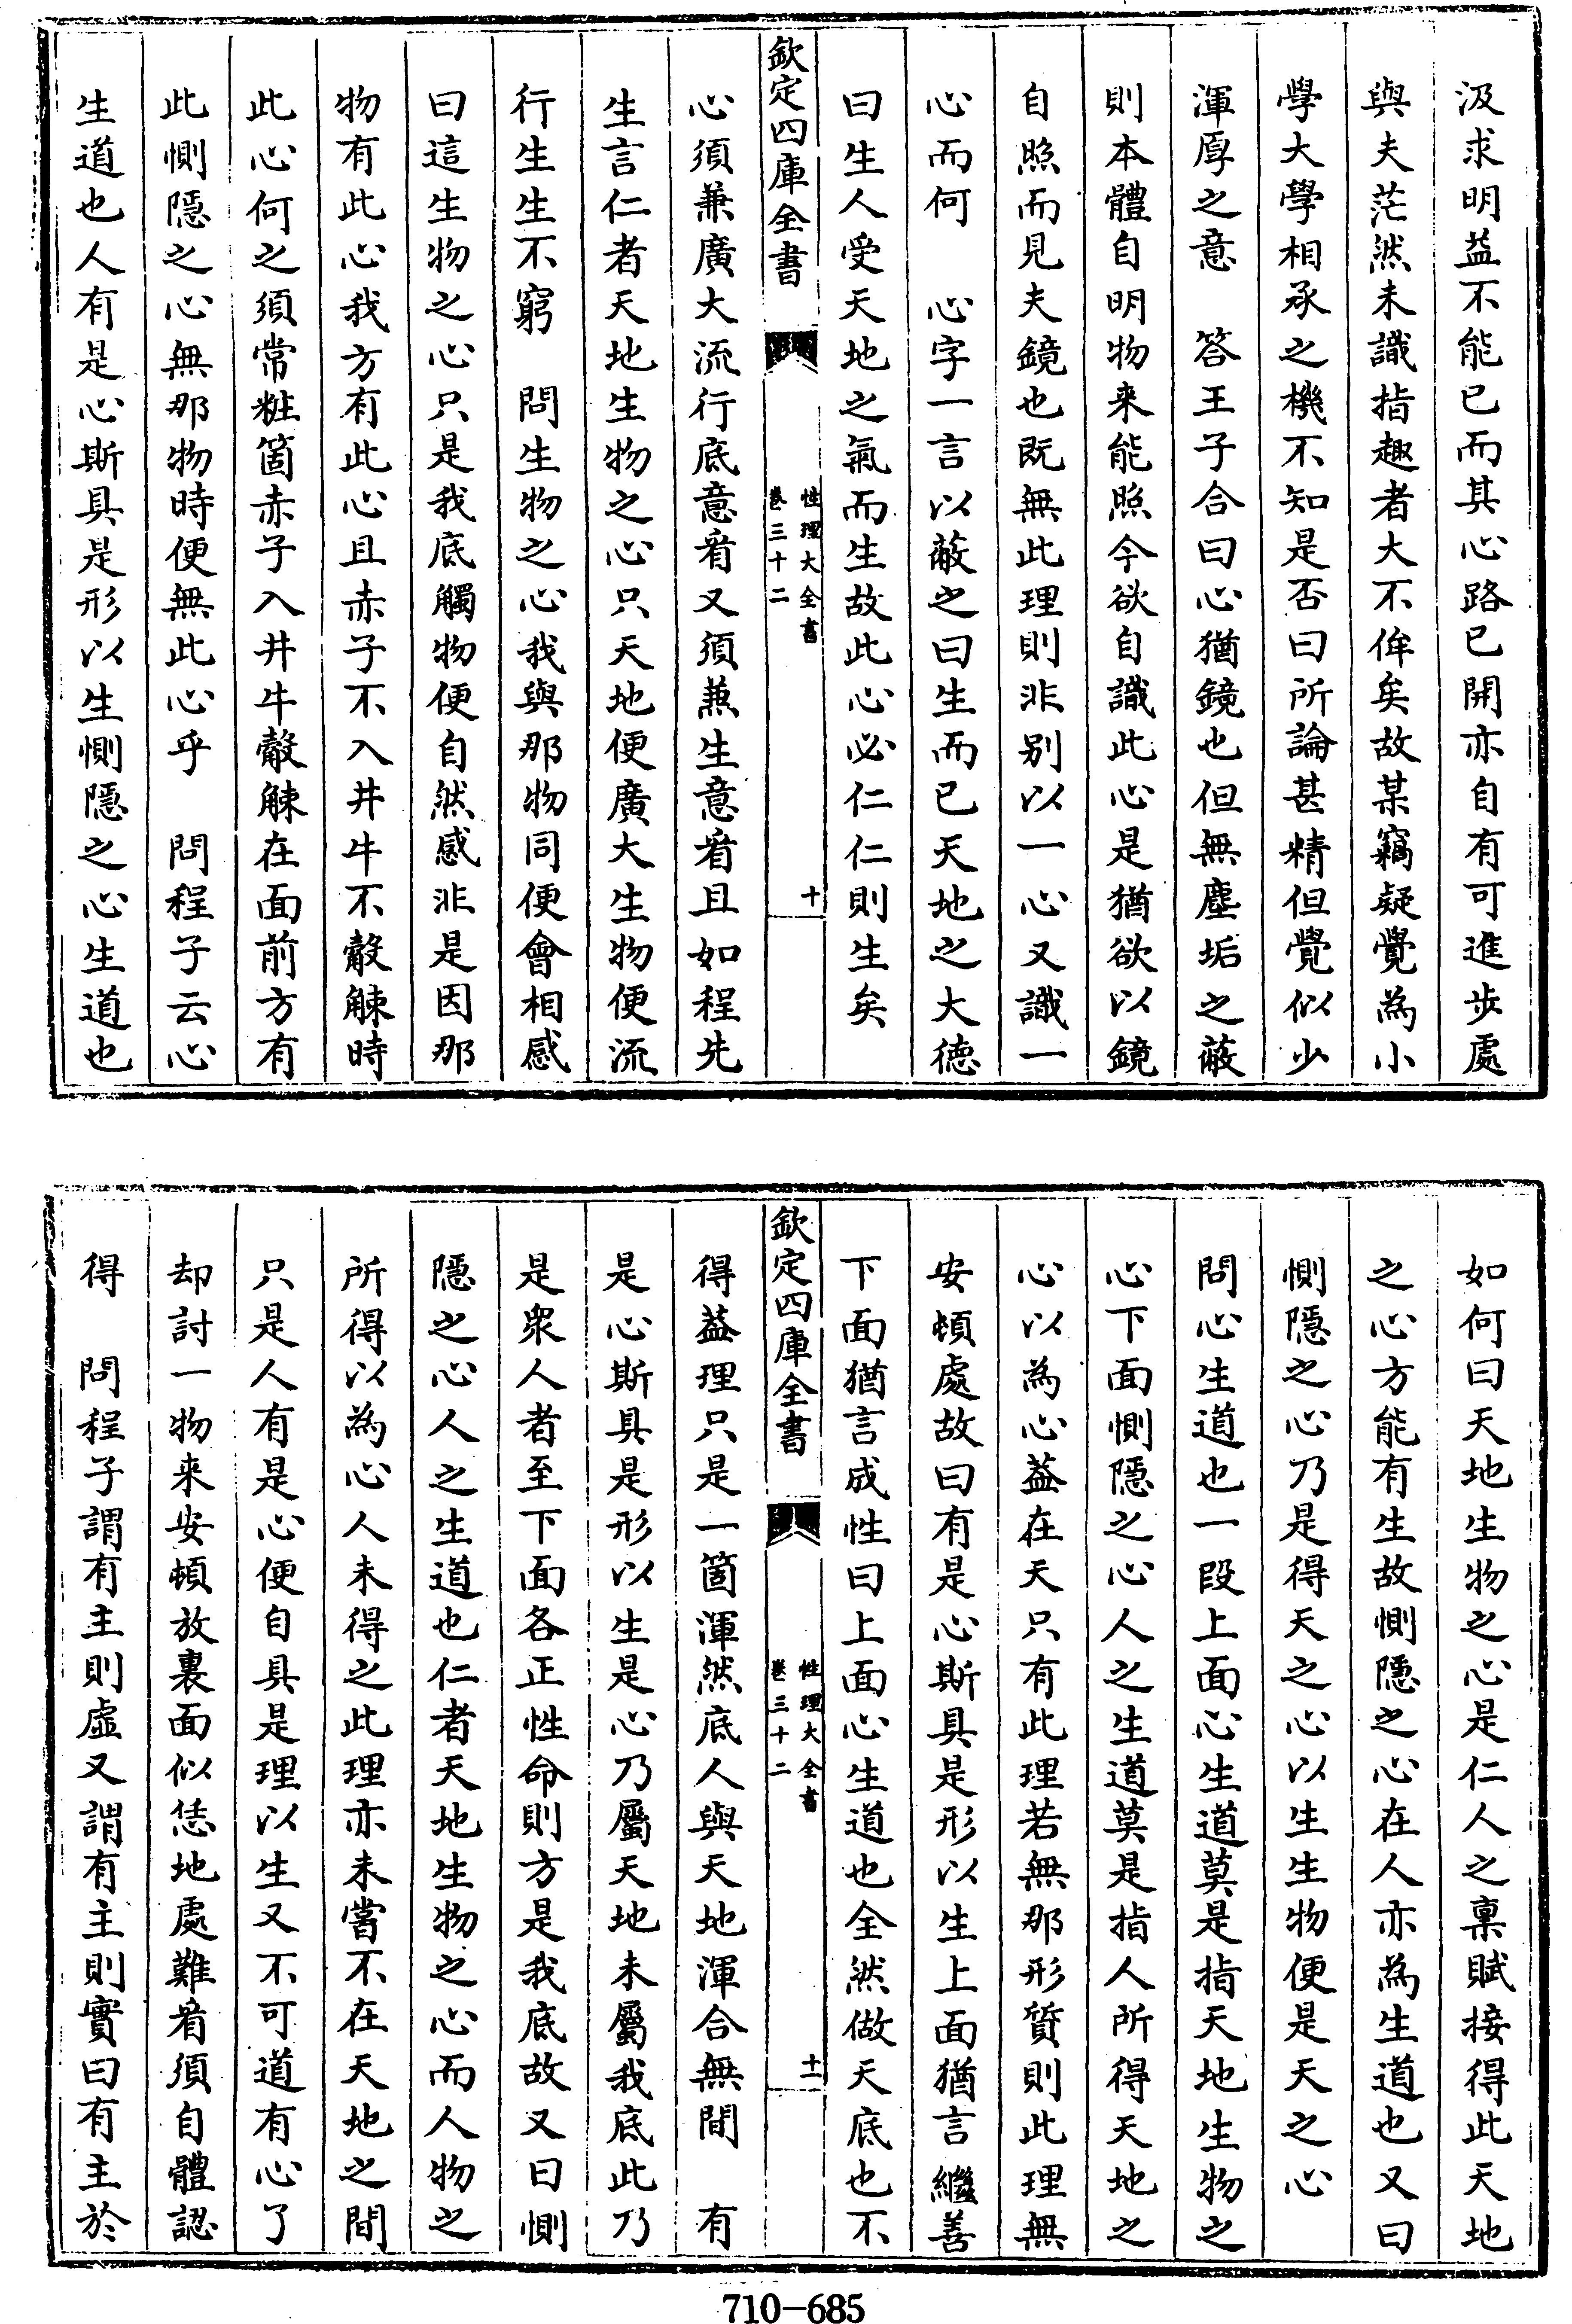 汲求明益不能已而其心路已開亦自有可進步處
與夫茫然未識指趣者大不侔矣故某竊疑覺為小
學大學相承之機不知是否曰所論甚精但覺似少
渾厚之意　答王子合曰心猶鏡也但無塵垢之蔽
則本體自明物来能照今欲自識此心是猶欲以鏡
自照而見夫鏡也既無此理則非别以一心又識一
心而何　心字一言以蔽之曰生而已天地之大德
曰生人受天地之氣而生故此心必仁仁則生矣
欽定四庫全書
性理大全書
卷三十二
十
心須兼廣大流行底意㸔又須兼生意㸔且如程先
生言仁者天地生物之心只天地便廣大生物便流
行生生不窮　問生物之心我與那物同便會相感
曰這生物之心只是我底觸物便自然感非是因那
物有此心我方有此心且赤子不入井牛不觳觫時
此心何之須常粧箇赤子入井牛觳觫在面前方有
此惻隱之心無那物時便無此心乎　問程子云心
生道也人有是心斯具是形以生惻隱之心生道也
如何曰天地生物之心是仁人之稟賦接得此天地
之心方能有生故惻隱之心在人亦為生道也又曰
惻隱之心乃是得天之心以生生物便是天之心
問心生道也一段上面心生道莫是指天地生物之
心下面惻隱之心人之生道莫是指人所得天地之
心以為心葢在天只有此理若無那形質則此理無
安頓處故曰有是心斯具是形以生上面猶言繼善
下面猶言成性曰上面心生道也全然做天底也不
欽定四庫全書
性理大全書
卷三十二
十一
得葢理只是一箇渾然底人與天地渾合無間　有
是心斯具是形以生是心乃屬天地未屬我底此乃
是衆人者至下面各正性命則方是我底故又曰惻
隱之心人之生道也仁者天地生物之心而人物之
所得以為心人未得之此理亦未嘗不在天地之間
只是人有是心便自具是理以生又不可道有心了
却討一物来安頓放裏面似恁地處難㸔須自體認
得　問程子謂有主則虛又謂有主則實曰有主於
710-685